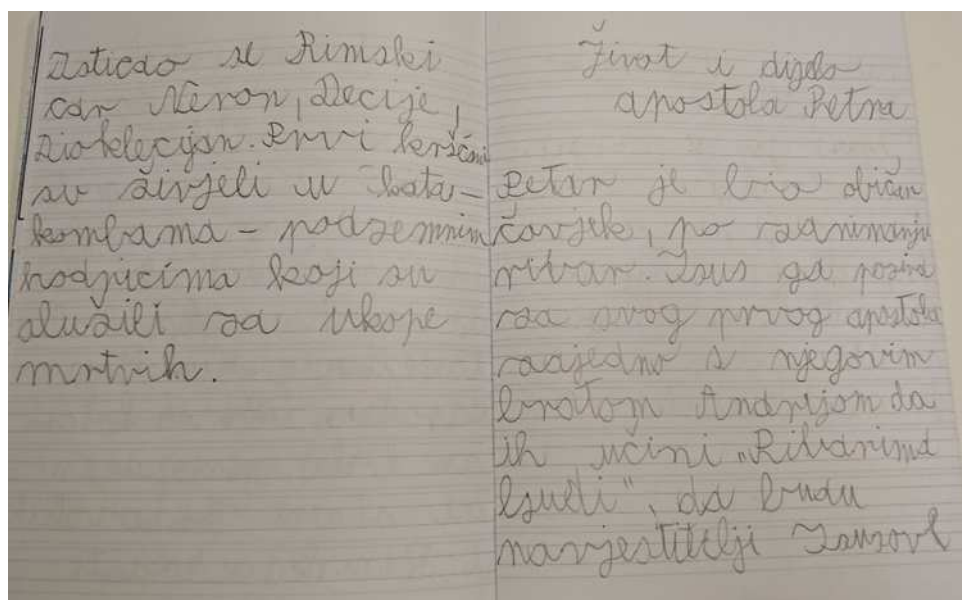 Isticao se Rimski
car Neron, Decije,
Dioklecijan. Prvi kršćani
su živjeli u kata-
kombama - podzemnim
hodnicima koji su
služili za ukope
mrtvih.
Život i djelo
apostola Petra
Petar je bio običan
čovjek, po zanimanju
ribar. Isus ga poziva
za svog prvog apostola
zajedno s njegovim
bratom Andrijom da
ih učini „Ribarima
ljudi", da budu
navjestitelji Isusove